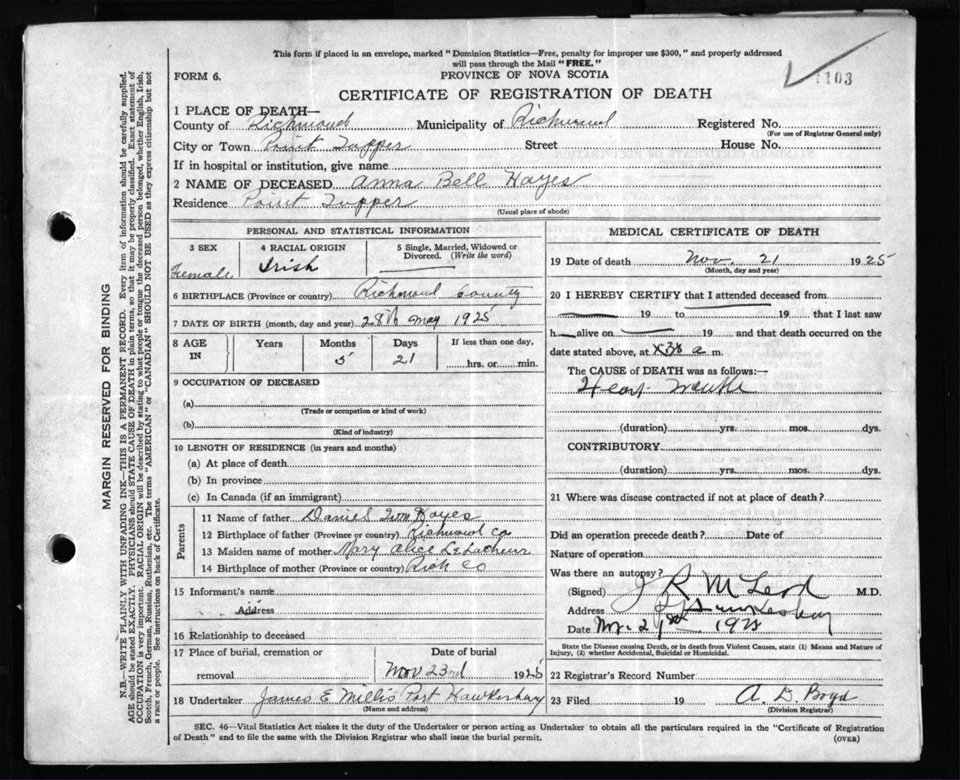 This form if placed in an envelope, marked "Dominion Statistics—Free, penalty for improper use $300," and properly addressed
will pass through the Mail "FREE."
FORM 6.
PROVINCE OF NOVA SCOTIA
1103
CERTIFICATE OF REGISTRATION OF DEATH
1 PLACE OF DEATH—
County of Richmond Municipality of Richmond Registered No.
(For use of Registrar General only)
City or Town Point Tupper Street House No.
If in hospital or institution, give name
2 NAME OF DECEASED Anna Bell Hayes
Residence Point Tupper
(Usual place of abode)
PERSONAL AND STATISTICAL INFORMATION
3 SEX Female
4 RACIAL ORIGIN Irish
5 Single, Married, Widowed or Divorced. (Write the word)
6 BIRTHPLACE (Province or country) Richmond County
7 DATE OF BIRTH (month, day and year) 28th May 1925
8 AGE IN Years Months Days If less than one day,
5 21 hrs. or min.
9 OCCUPATION OF DECEASED
(a)
(Trade or occupation or kind of work)
(b)
(Kind of industry)
10 LENGTH OF RESIDENCE (in years and months)
(a) At place of death
(b) In province
(c) In Canada (if an immigrant)
Parents
11 Name of father Daniel Wm Hayes
12 Birthplace of father (Province or country) Richmond Co
13 Maiden name of mother Mary Alice LeLacheur
14 Birthplace of mother (Province or country) Rich Co
15 Informant's name
Address
16 Relationship to deceased
17 Place of burial, cremation or removal
Date of burial
Nov 23rd 1925
18 Undertaker James E Millis Port Hawkesbury
(Name and address)
MEDICAL CERTIFICATE OF DEATH
19 Date of death Nov. 21 1925
(Month, day and year)
20 I HEREBY CERTIFY that I attended deceased from
19 to 19 that I last saw
h alive on 19 and that death occurred on
date stated above, at a m.
The CAUSE of DEATH was as follows:—
Heart
(duration) yrs. mos. dys.
CONTRIBUTORY
(duration) yrs. mos. dys.
21 Where was disease contracted if not at place of death?
Did an operation precede death? Date of
Nature of operation
Was there an autopsy?
(Signed) J R McLeod M.D.
Address
Date Nov. 21st
State the Disease causing Death, or in death from Violent Causes, state (1) Means and Nature of
Injury, (2) whether Accidental, Suicidal or Homicidal.
22 Registrar's Record Number
23 Filed 19 A. D. Boyd
(Division Registrar)
SEC. 46—Vital Statistics Act makes it the duty of the Undertaker or person acting as Undertaker to obtain all the particulars required in the "Certificate of Registration
of Death" and to file the same with the Division Registrar who shall issue the burial permit.
(OVER)
MARGIN RESERVED FOR BINDING
N.B.—WRITE PLAINLY WITH UNFADING INK—THIS IS A PERMANENT RECORD. Every item of information should be carefully supplied.
AGE should be stated EXACTLY. PHYSICIANS should STATE CAUSE OF DEATH in plain terms, so that it may be properly classified. Exact statement of
OCCUPATION is very important. RACIAL ORIGIN will be described by stating to what people or tongue the deceased person belonged, whether English, Irish,
Scotch, French, German, Russian, Ruthenian, etc. The terms "AMERICAN" or "CANADIAN" SHOULD NOT BE USED as they express citizenship but not
a race or people. See instructions on back of Certificate.